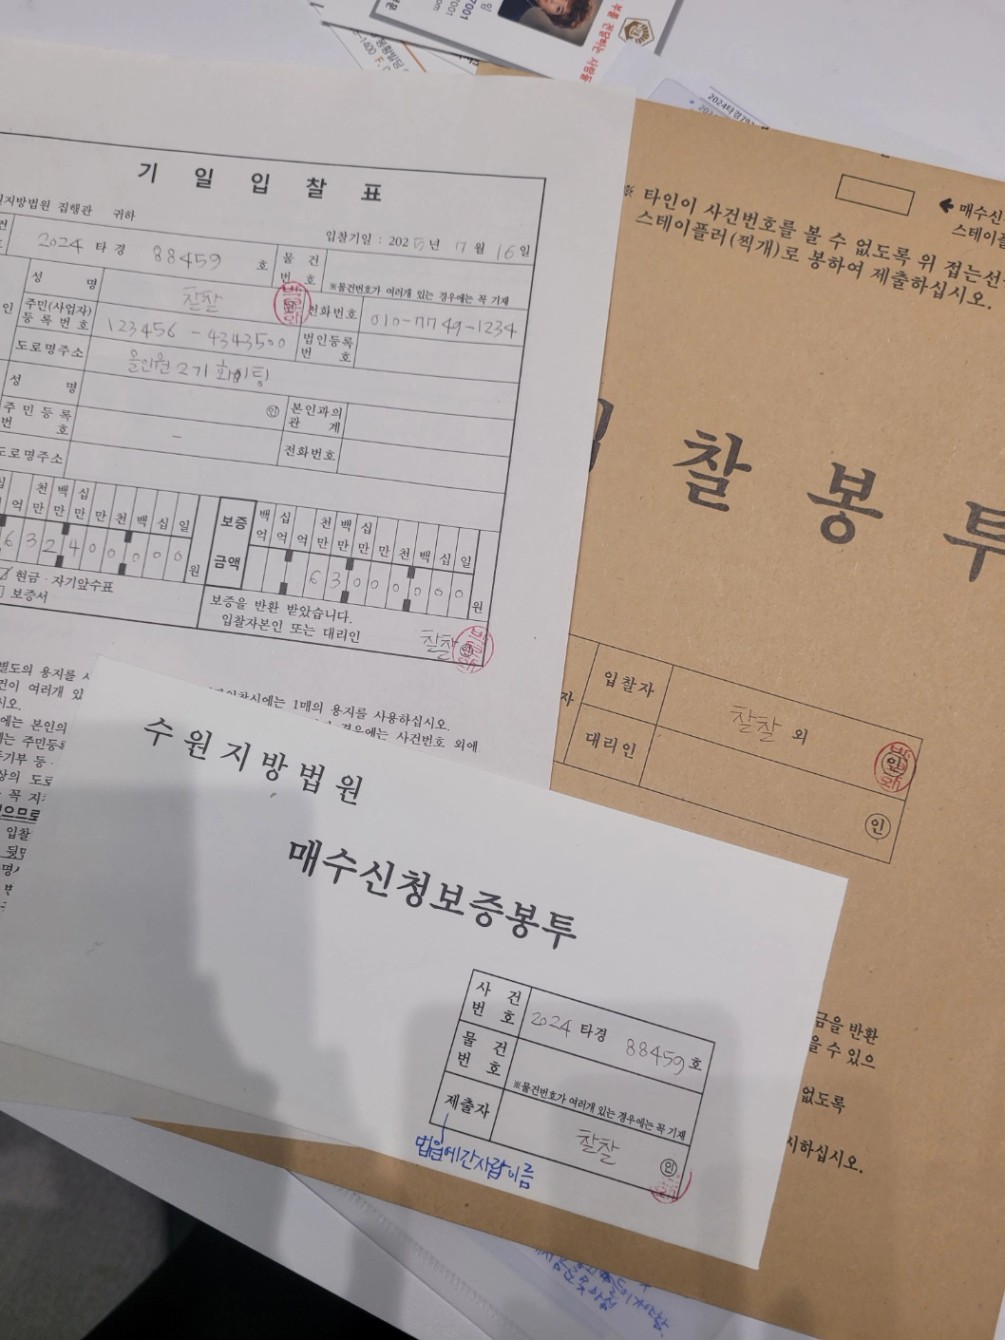 7001
7001
com
부를 전달하는 사람들
2024타경79
기 일 입 찰 표
지방법원 집행관 귀하
입찰기일 : 2025년 7월 16일
2024 타경 88459 호
물건번호
※물건번호가 여러개 있는 경우에는 꼭 기재
성 명 찰찰 인 전화번호 010-7749-1234
주민(사업자)등록번호 123456 - 4343500 법인등록번호
도로명주소 올인원 2기 화이팅
성 명 인 본인과의 관계
주민등록번호 - 전화번호
도로명주소
억 천만 백만 십만 만 천 백 십 일
632400000 원
보증금액 백억 십억 억 천만 백만 십만 만 천 백 십 일
63000000 원
현금·자기앞수표
보증서
보증을 반환 받았습니다.
입찰자본인 또는 대리인 찰찰 인
별도의 용지를
에는 1매의 용지를 사용하십시오.
건이 여러개 있
경우에는 사건번호 외에
시오.
에는 본인의
는 주민등록
기부 등
상의 도로
꼭 지
으므로
입찰
← 매수신
스테이플
※ 타인이 사건번호를 볼 수 없도록 위 접는선
스테이플러(찍개)로 봉하여 제출하십시오.
입 찰 봉 투
자
입찰자 찰찰 외 인
대리인 인
금을 반환
을 수 있으
없도록
시하십시오.
수원지방법원
매수신청보증봉투
사건번호 2024 타경 88459호
물건번호
※물건번호가 여러개 있는 경우에는 꼭 기재
제출자 찰찰 인
법원에간사람이름